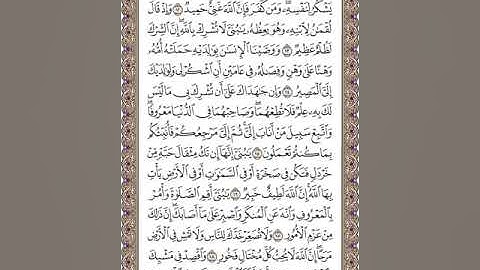 يَشْكُرُ لِنَفْسِهِۦ ۖ وَمَن كَفَرَ فَإِنَّ ٱللَّهَ غَنِىٌّ حَمِيدٌ ١٢ وَإِذْ قَالَ
لُقْمَـٰنُ لِٱبْنِهِۦ وَهُوَ يَعِظُهُۥ يَـٰبُنَىَّ لَا تُشْرِكْ بِٱللَّهِ ۖ إِنَّ ٱلشِّرْكَ
لَظُلْمٌ عَظِيمٌ ١٣ وَوَصَّيْنَا ٱلْإِنسَـٰنَ بِوَٰلِدَيْهِ حَمَلَتْهُ أُمُّهُۥ
وَهْنًا عَلَىٰ وَهْنٍ وَفِصَـٰلُهُۥ فِى عَامَيْنِ أَنِ ٱشْكُرْ لِى وَلِوَٰلِدَيْكَ
إِلَىَّ ٱلْمَصِيرُ ١٤ وَإِن جَـٰهَدَاكَ عَلَىٰٓ أَن تُشْرِكَ بِى مَا لَيْسَ
لَكَ بِهِۦ عِلْمٌ فَلَا تُطِعْهُمَا ۖ وَصَاحِبْهُمَا فِى ٱلدُّنْيَا مَعْرُوفًا ۖ
وَٱتَّبِعْ سَبِيلَ مَنْ أَنَابَ إِلَىَّ ۚ ثُمَّ إِلَىَّ مَرْجِعُكُمْ فَأُنَبِّئُكُم
بِمَا كُنتُمْ تَعْمَلُونَ ١٥ يَـٰبُنَىَّ إِنَّهَآ إِن تَكُ مِثْقَالَ حَبَّةٍ مِّنْ
خَرْدَلٍ فَتَكُن فِى صَخْرَةٍ أَوْ فِى ٱلسَّمَـٰوَٰتِ أَوْ فِى ٱلْأَرْضِ يَأْتِ
بِهَا ٱللَّهُ ۚ إِنَّ ٱللَّهَ لَطِيفٌ خَبِيرٌ ١٦ يَـٰبُنَىَّ أَقِمِ ٱلصَّلَوٰةَ وَأْمُرْ
بِٱلْمَعْرُوفِ وَٱنْهَ عَنِ ٱلْمُنكَرِ وَٱصْبِرْ عَلَىٰ مَآ أَصَابَكَ ۖ إِنَّ ذَٰلِكَ
مِنْ عَزْمِ ٱلْأُمُورِ ١٧ وَلَا تُصَعِّرْ خَدَّكَ لِلنَّاسِ وَلَا تَمْشِ فِى ٱلْأَرْضِ
مَرَحًا ۖ إِنَّ ٱللَّهَ لَا يُحِبُّ كُلَّ مُخْتَالٍ فَخُورٍ ١٨ وَٱقْصِدْ فِى مَشْيِكَ